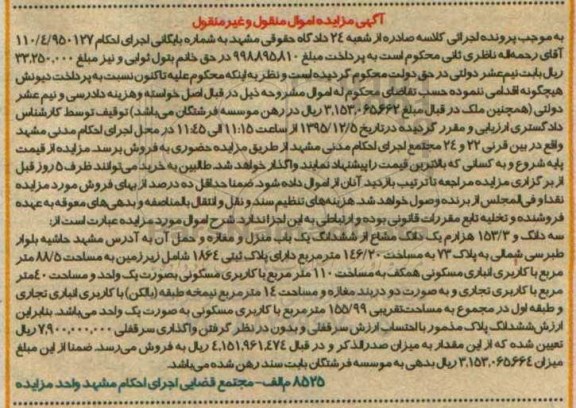 آگهی مزایده اموال منقول و غیر منقول
به موجب پرونده اجرائی کلاسه صادره از شعبه ۲۴ دادگاه حقوقی مشهد به شماره بایگانی اجرای احکام ۱۱۰/۴/۹۵۰۱۲۷
آقای رحمه‌اله ناظری ثانی محکوم است به پرداخت مبلغ ۹۹۸۸۹۵۸۱۰ در حق خانم بتول ثوابی و نیز مبلغ ۳۳,۲۵۰,۰۰۰
ریال بابت نیم عشر دولتی در حق دولت محکوم گردیده است و نظر به اینکه محکوم علیه تاکنون نسبت به پرداخت دیونش
هیچگونه اقدامی ننموده حسب تقاضای محکوم له اموال مشروحه ذیل در قبال اصل خواسته و هزینه دادرسی و نیم عشر
دولتی (همچنین ملک در قبال مبلغ ۳,۱۵۳,۰۶۵۶۶۲ ریال در رهن موسسه فرشتگان می‌باشد) توقیف توسط کارشناس
دادگستری ارزیابی و مقرر گردیده در تاریخ ۱۳۹۵/۱۲/۵ از ساعت ۱۱:۱۵ الی ۱۱:۴۵ در محل اجرای احکام مدنی مشهد
واقع در بین قرنی ۲۲ و ۲۴ مجتمع اجرای احکام مدنی مشهد از طریق مزایده حضوری به فروش برسد. مزایده از قیمت
پایه شروع و به کسانی که بالاترین قیمت را پیشنهاد نمایند واگذار خواهد شد. طالبین به خرید می‌توانند ظرف ۵ روز قبل
از برگزاری مزایده مراجعه تا ترتیب بازدید آنان از اموال داده شود. ضمنا حداقل ده درصد از بهای فروش مورد مزایده
نقدا و فی المجلس از برنده وصول خواهد شد. هزینه‌های تنظیم سند و نقل و انتقال بالمناصفه و بدهی‌های معوقه به عهده
فروشنده و تخلیه تابع مقررات قانونی بوده و ارتباطی به این اجرا ندارد شرح اموال مورد مزایده عبارت است از:
سه دانگ و ۱۵۳/۳ هزارم یک دانگ مشاع از ششدانگ یک باب منزل و مغازه و حمل آن به آدرس مشهد حاشیه بلوار
طبرسی شمالی به پلاک ۷۳ به مساحت ۱۴۶/۲۰ مترمربع دارای پلاک ثبتی ۱۸۶۴ شامل زیرزمین به مساحت ۸۸/۵ متر
مربع با کاربری انباری مسکونی همکف به مساحت ۱۱۰ متر مربع با کاربری مسکونی بصورت یک واحد و مساحت ۴۰ متر
مربع با کاربری تجاری و به صورت دو دربند مغازه و مساحت ۱۴ متر مربع نیمخه طبقه (بالکن) با کاربری انباری تجاری
و طبقه اول در مجموع به مساحت تقریبی ۱۵۵/۹۹ مترمربع با کاربری مسکونی به صورت یک واحد می‌باشد. بنابراین
ارزش ششدانگ پلاک مذمور با احتساب ارزش سرقفلی و بدون در نظر گرفتن واگذاری سرقفلی ۷,۹۰۰,۰۰۰,۰۰۰ ریال
تعیین شده که از این مقدار به میزان صدرالذکر و در قبال ۴,۱۵۱,۹۶۱,۴۷۴ ریال به فروش می‌رسد. ضمنا از این مبلغ
میزان ۳,۱۵۳,۰۶۵۶۶۴ ریال بدهی به موسسه فرشتگان بابت سند رهن شده می‌باشد.
۸۵۲۵ م الف - مجتمع قضایی اجرای احکام مشهد واحد مزایده